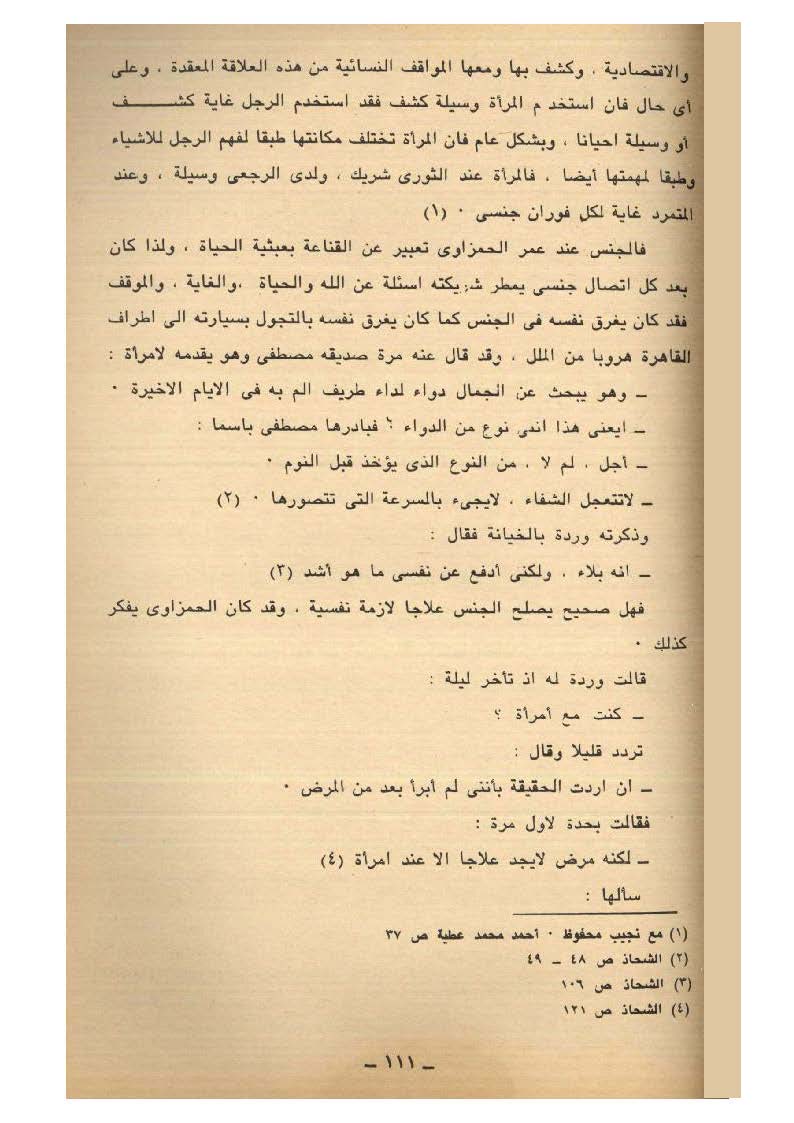 والاقتصادية ، وكشف بها ومعها المواقف النسائية من هذه العلاقة المعقدة ، وعلى
أى حال فان استخد م المرأة وسيلة كشف فقد استخدم الرجل غاية كشــــــف
أو وسيلة احيانا ، وبشكل عام فان المرأة تختلف مكانتها طبقا لفهم الرجل للاشياء
وطبقا لمهمتها أيضا ، فالمرأة عند الثورى شريك ، ولدى الرجعى وسيلة ، وعند
المتمرد غاية لكل فوران جنسى ٠ (١)
فالجنس عند عمر الحمزاوى تعبير عن القناعة بعبثية الحياة ، ولذا كان
بعد كل اتصال جنسى يمطر شريكته اسئلة عن الله والحياة ،والغاية ، والموقف
فقد كان يغرق نفسه فى الجنس كما كان يغرق نفسه بالتجول بسيارته الى اطراف
القاهرة هروبا من الملل ، وقد قال عنه مرة صديقه مصطفى وهو يقدمه لامرأة :
ــ وهو يبحث عن الجمال دواء لداء طريف الم به فى الايام الاخيرة ٠
ــ ايعنى هذا اننى نوع من الدواء ؟ فبادرها مصطفى باسما :
ــ أجل ، لم لا ، من النوع الذى يؤخذ قبل النوم ٠
ــ لاتتعجل الشفاء ، لايجىء بالسرعة التى تتصورها ٠ (٢)
وذكرته وردة بالخيانة فقال :
ــ انه بلاء ، ولكنى أدفع عن نفسى ما هو أشد (٣)
فهل صحيح يصلح الجنس علاجا لازمة نفسية ، وقد كان الحمزاوى يفكر
كذلك ٠
قالت وردة له اذ تأخر ليلة :
ــ كنت مع أمرأة ؟
تردد قليلا وقال :
ــ ان اردت الحقيقة بأننى لم أبرأ بعد من المرض ٠
فقالت بحدة لاول مرة :
ــ لكنه مرض لايجد علاجا الا عند امرأة (٤)
سألها :
(١) مع نجيب محفوظ ٠ أحمد محمد عطية ص ٣٧
(٢) الشحاذ ص ٤٨ ــ ٤٩
(٣) الشحاذ ص ١٠٦
(٤) الشحاذ ص ١٢١
ــ ١١١ ــ